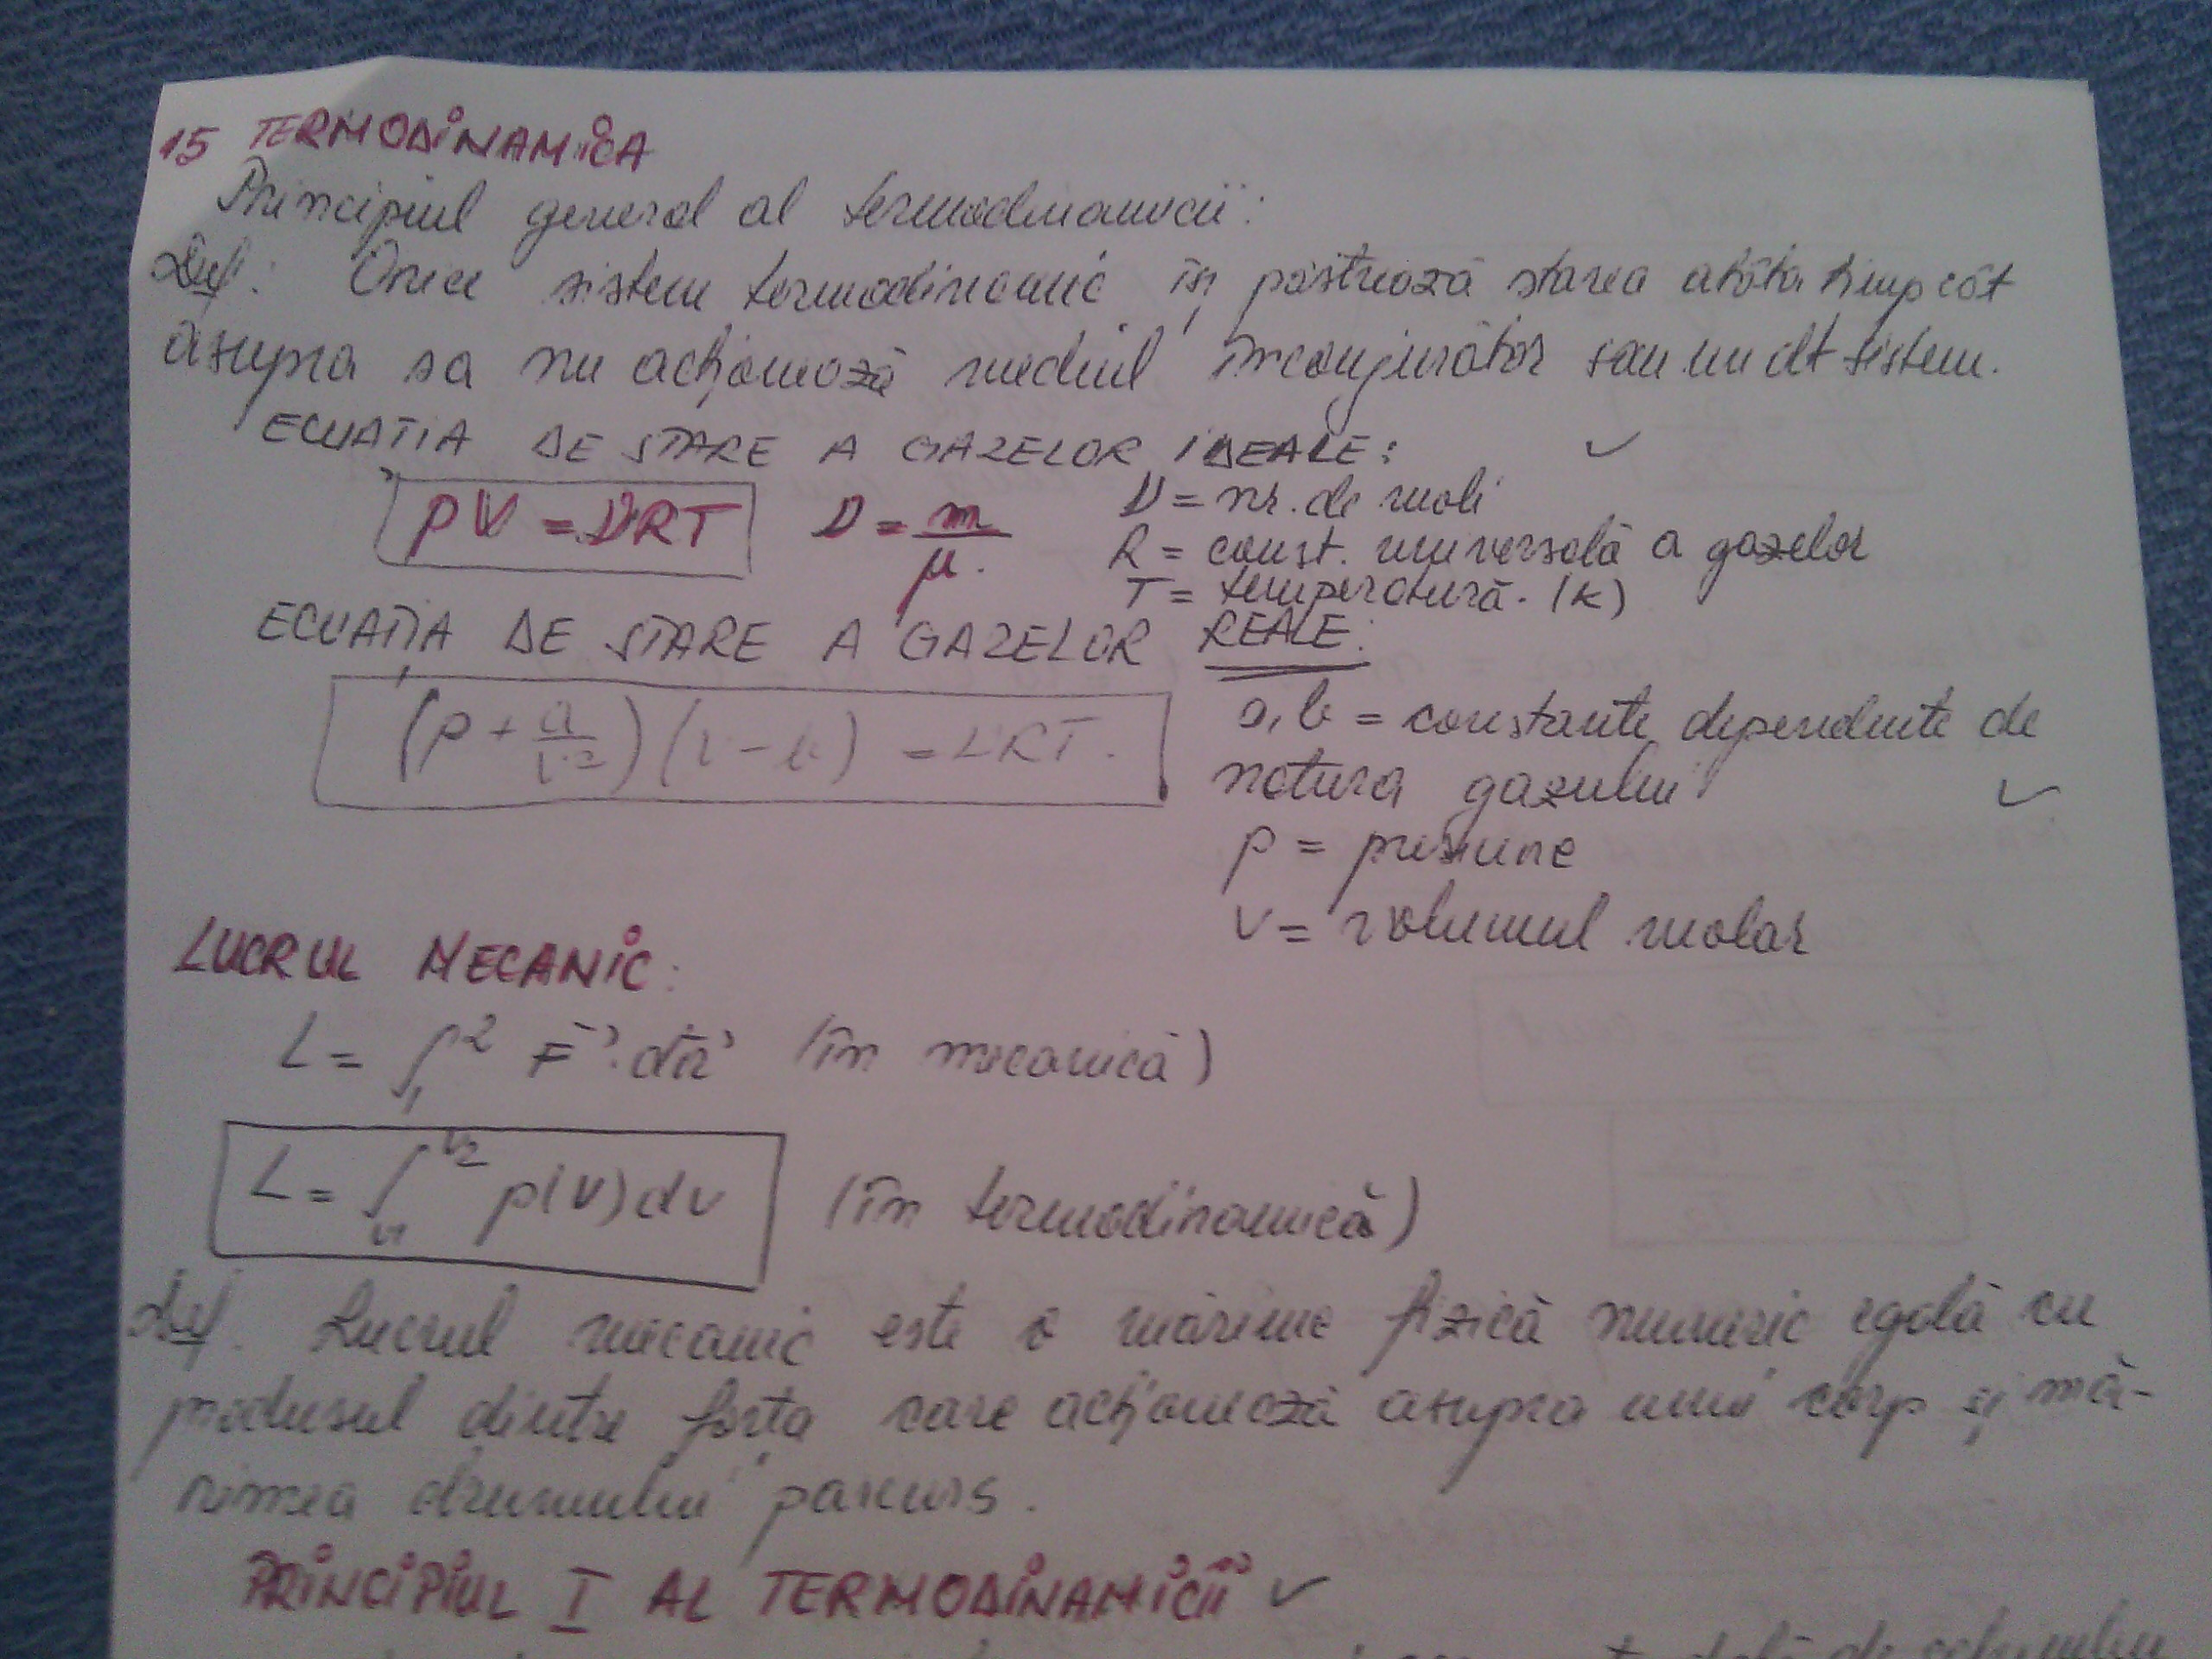 15 TERMODINAMICA
Principiul general al termodinamicii:
Def: Orice sistem termodinamic își păstrează starea atâta timp cât
asupra sa nu acționează mediul înconjurător sau un alt sistem.
ECUATIA DE STARE A GAZELOR IDEALE: ✓
pV = νRT ν = m/μ. ν = nr. de moli
R = const. universală a gazelor
T = temperatură. (K)
ECUAȚIA DE STARE A GAZELOR REALE:
(p + a/V²)(V - b) = νRT. a, b = constante dependente de
natura gazului ✓
p = presiune
V = volumul molar
LUCRUL MECANIC:
L = ∫₁² F⃗ · dr⃗ (în mecanică)
L = ∫_{V1}^{V2} p(V) dV (în termodinamică)
Def. Lucrul mecanic este o mărime fizică numeric egală cu
produsul dintre forța care acționează asupra unui corp și mă-
rimea drumului parcurs.
PRINCIPIUL I AL TERMODINAMICII ✓